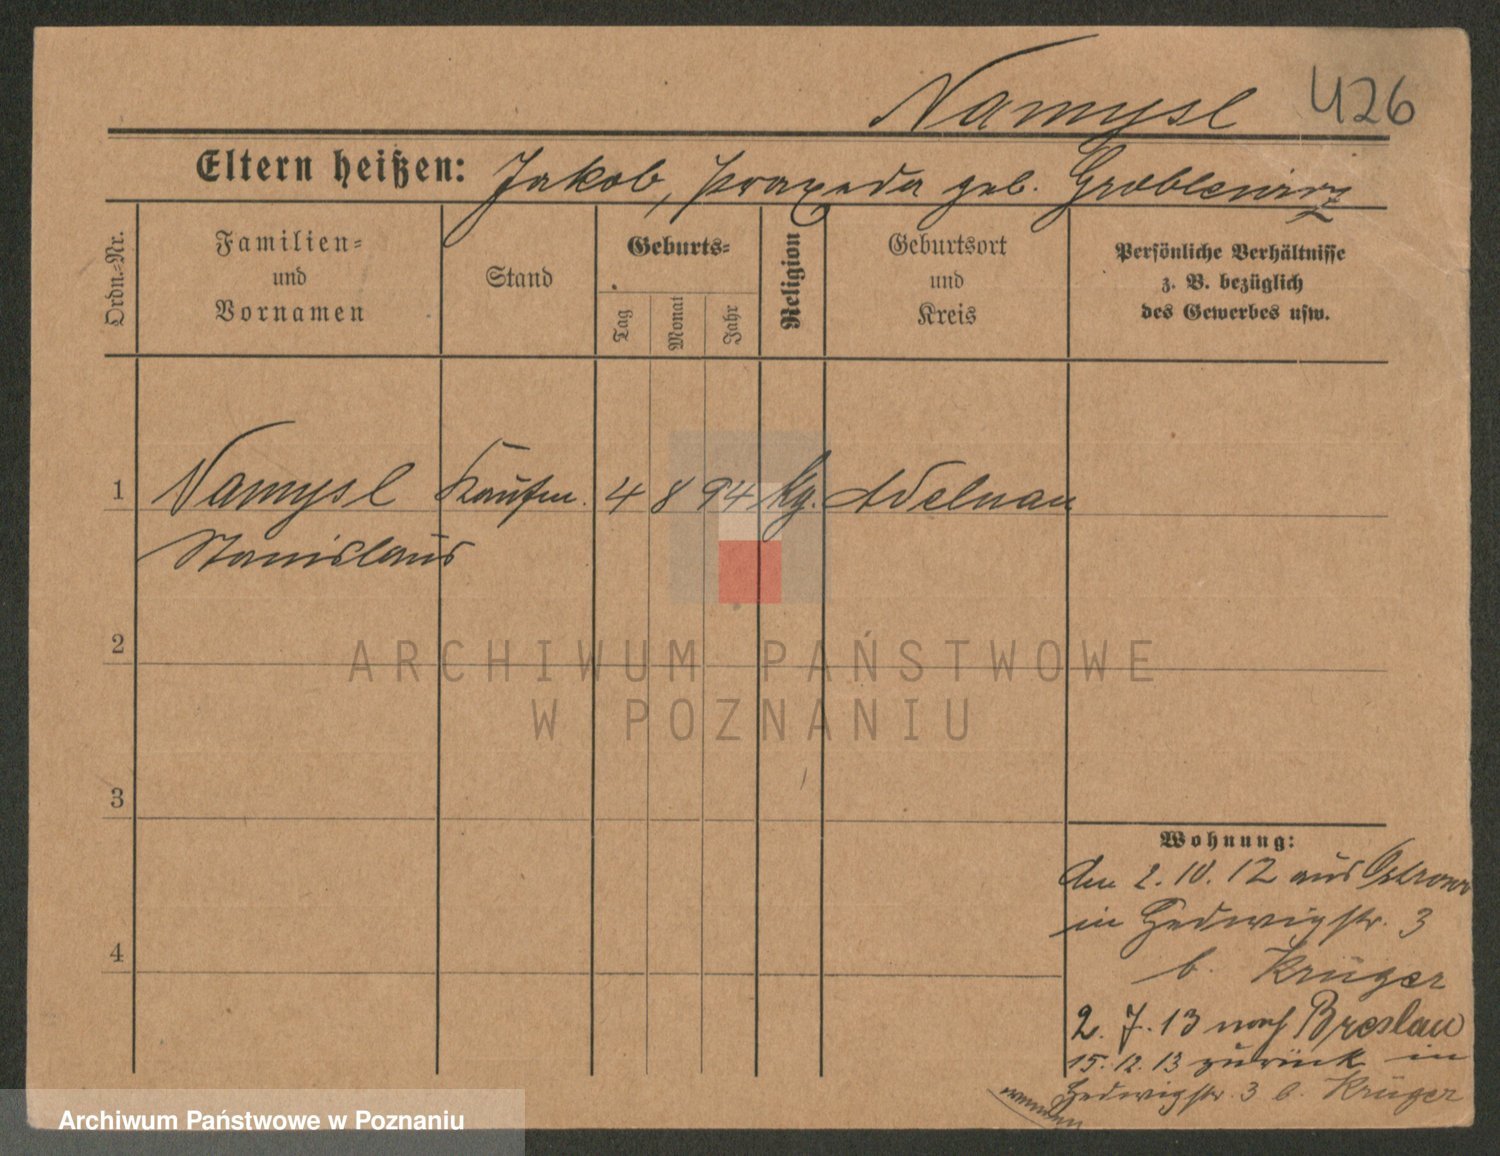 Namysl 426
Eltern heißen: Jakob, Praxeda geb. Groblewicz
Ordn.-Nr.
Familien-
und
Vornamen
Stand
Geburts-
Tag
Monat
Jahr
Religion
Geburtsort
und
Kreis
Persönliche Verhältnisse
z. B. bezüglich
des Gewerbes usw.
1 Namysl Kaufm. 4 8 94 kg. Adelnau
Stanislaus
2
3
4
Wohnung:
Am 2.10.12 aus Ostrowo
in Hedwigstr. 3
b. Krüger
2. 7. 13 nach Breslau
15.12.13 zurück in
Hedwigstr. 3 b. Krüger
ARCHIWUM PAŃSTWOWE
W POZNANIU
Archiwum Państwowe w Poznaniu